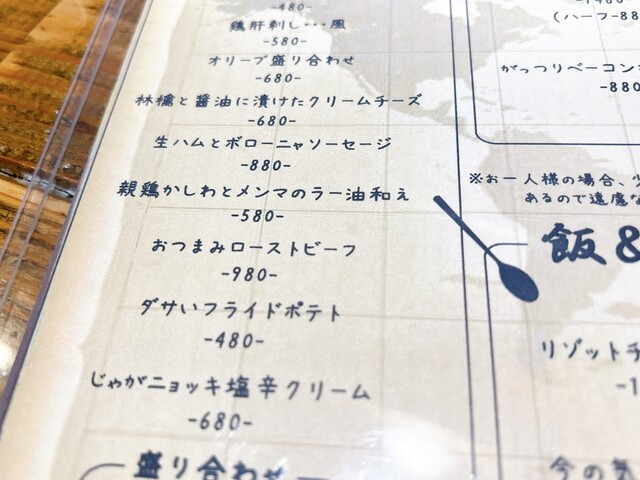 -480-
鶏肝刺し…風
-580-
オリーブ盛り合わせ
-680-
林檎と醤油に漬けたクリームチーズ
-680-
生ハムとボローニャソーセージ
-880-
親鶏かしわとメンマのラー油和え
-580-
おつまみローストビーフ
-980-
ダサいフライドポテト
-480-
じゃがニョッキ塩辛クリーム
-680-
盛り合わせ
(ハーフ-88
がっつりベーコン
-880
※お一人様の場合、
あるので遠慮な
飯&
リゾット
-1
今の気